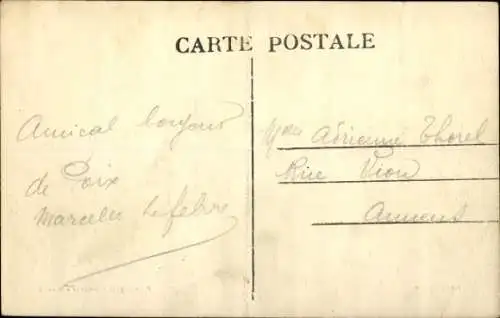 CARTE POSTALE
Amical bonjour
de Poix
Marcelle Lefebvre
Adrienne Thorel
Rue Vion
Amiens